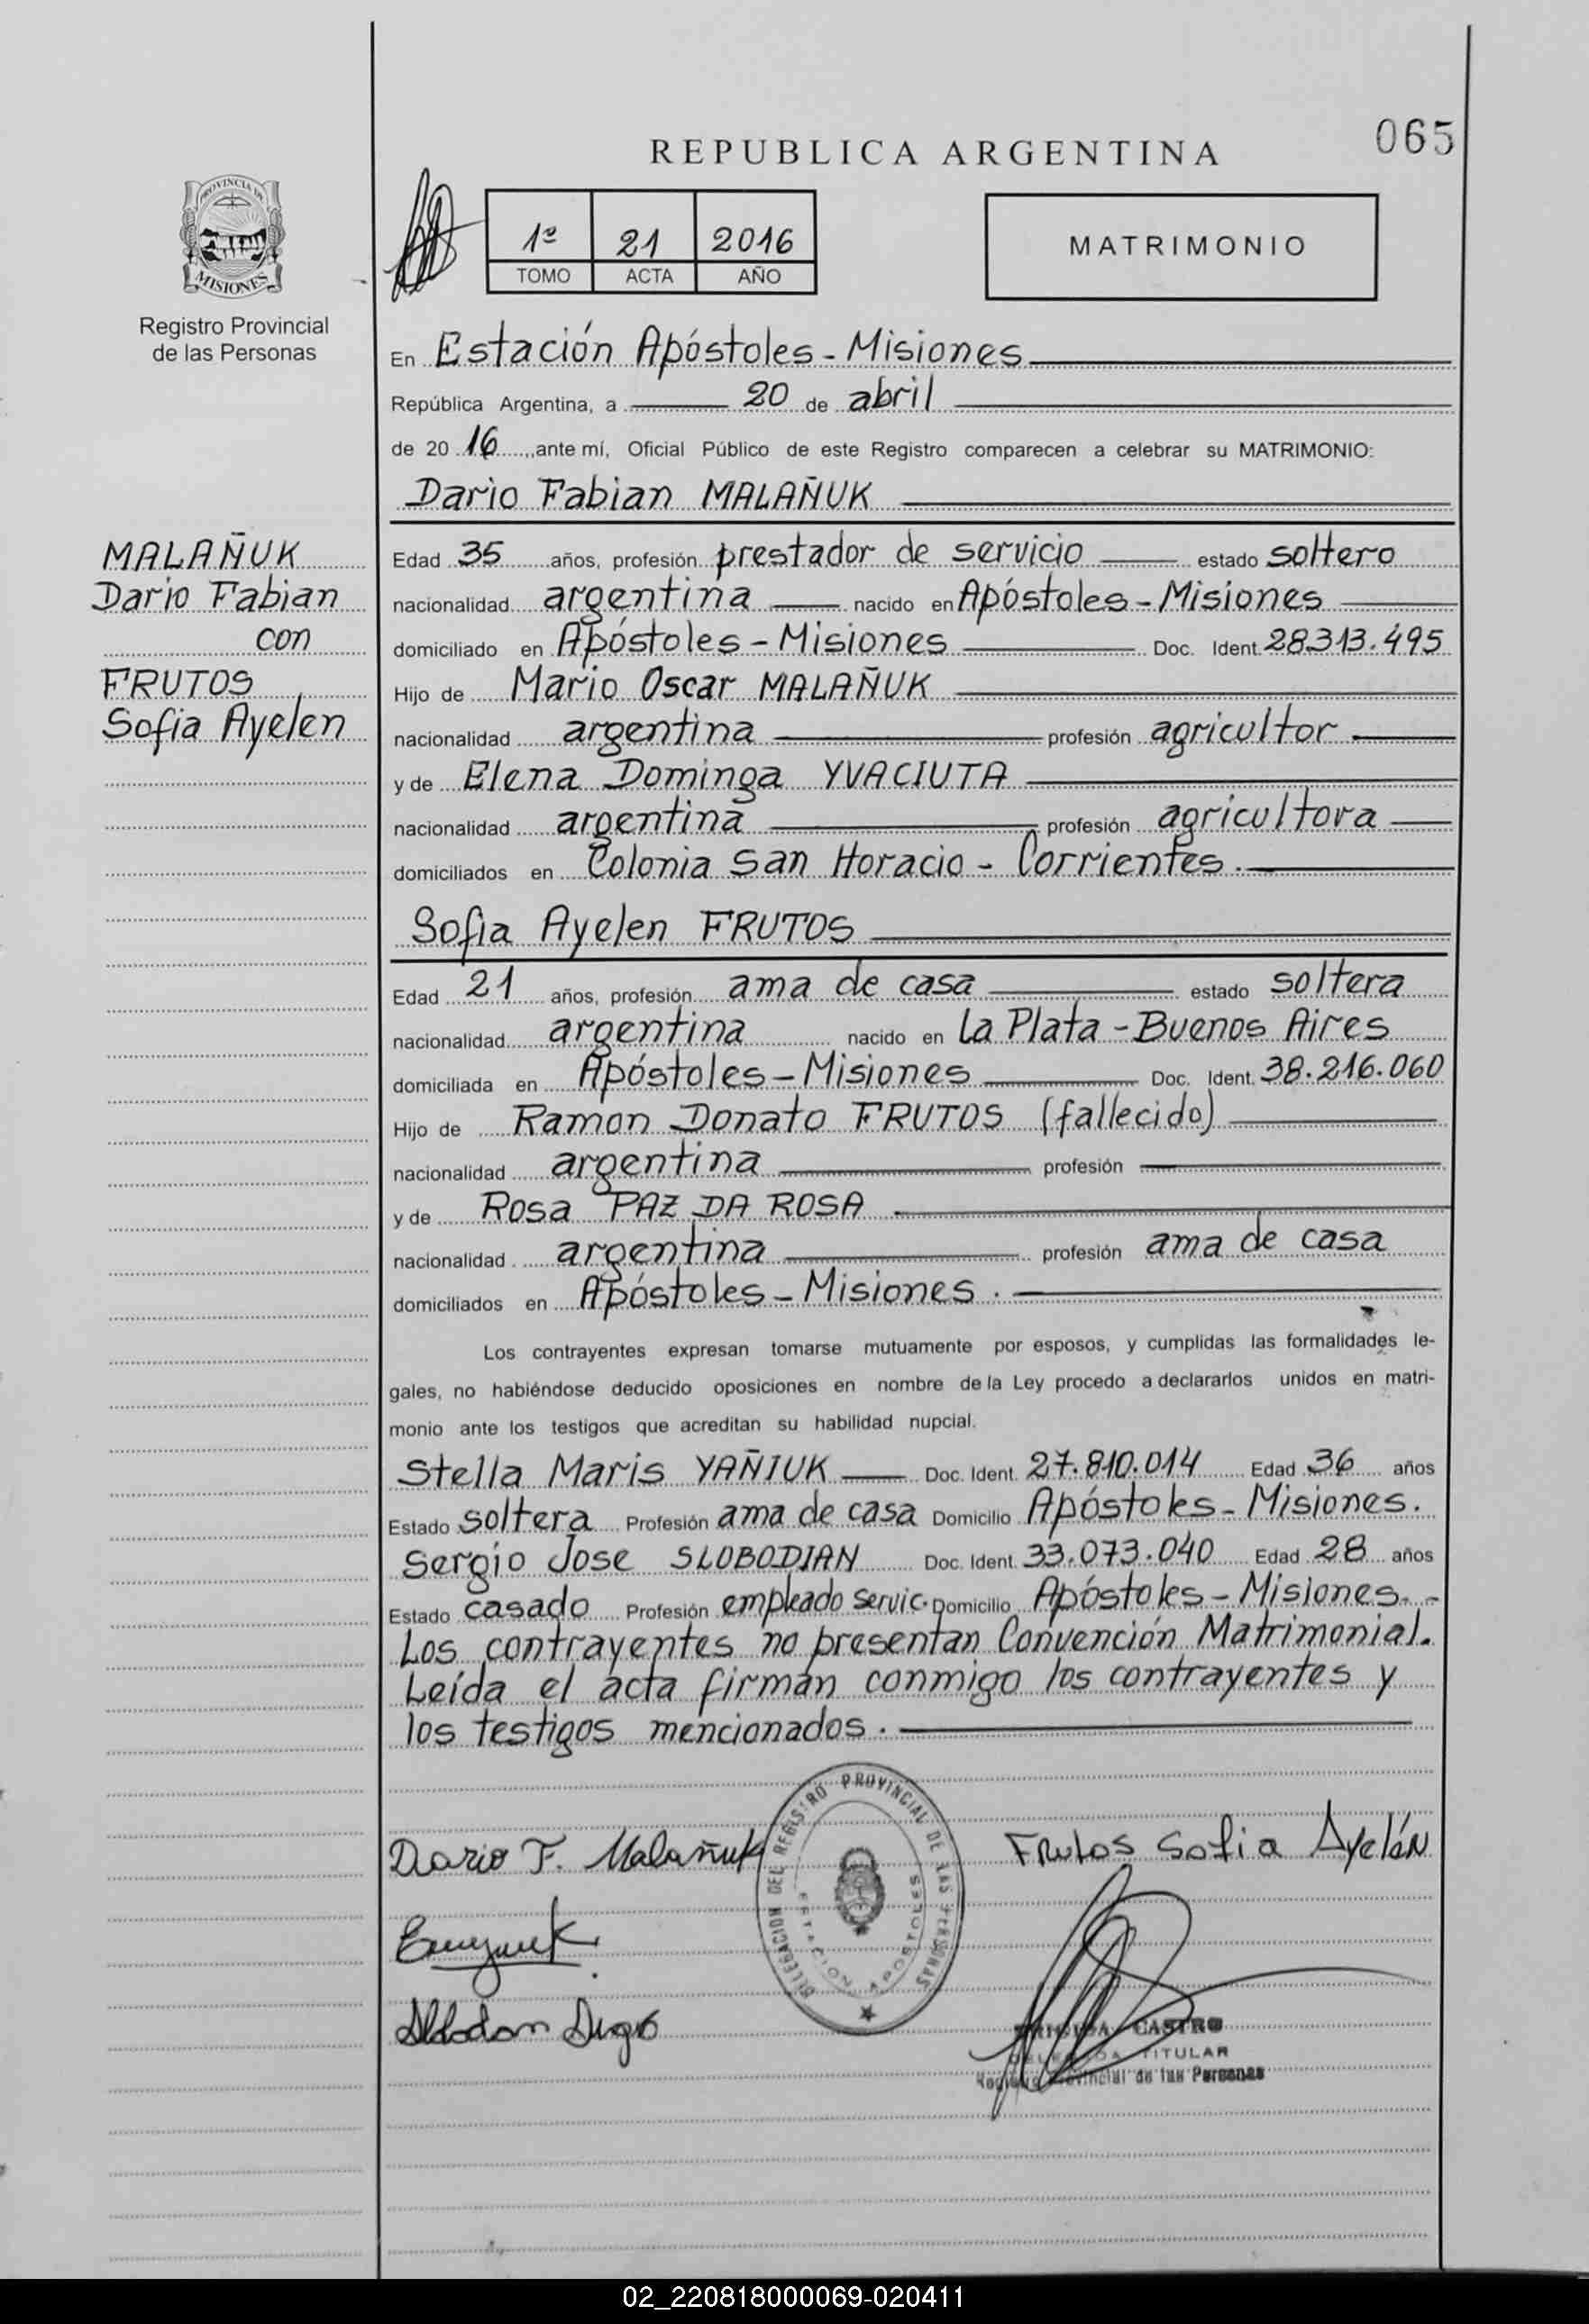 065
REPUBLICA ARGENTINA
PROVINCIA DE
MISIONES
Registro Provincial
de las Personas
1º 21 2016
TOMO ACTA AÑO
MATRIMONIO
En Estación Apóstoles - Misiones
República Argentina, a 20 de abril
de 2016, ante mí, Oficial Público de este Registro comparecen a celebrar su MATRIMONIO:
Dario Fabian MALAÑUK
MALAÑUK
Dario Fabian
con
FRUTOS
Sofia Ayelen
Edad 35 años, profesión prestador de servicio estado soltero
nacionalidad argentina nacido en Apóstoles - Misiones
domiciliado en Apóstoles - Misiones Doc. Ident. 28.313.495
Hijo de Mario Oscar MALAÑUK
nacionalidad argentina profesión agricultor
y de Elena Dominga YVACIUTA
nacionalidad argentina profesión agricultora
domiciliados en Colonia San Horacio - Corrientes.
Sofia Ayelen FRUTOS
Edad 21 años, profesión ama de casa estado soltera
nacionalidad argentina nacido en La Plata - Buenos Aires
domiciliada en Apóstoles - Misiones Doc. Ident. 38.216.060
Hijo de Ramon Donato FRUTOS (fallecido)
nacionalidad argentina profesión
y de Rosa PAZ DA ROSA
nacionalidad argentina profesión ama de casa
domiciliados en Apóstoles - Misiones.
Los contrayentes expresan tomarse mutuamente por esposos, y cumplidas las formalidades le-
gales, no habiéndose deducido oposiciones en nombre de la Ley procedo a declararlos unidos en matri-
monio ante los testigos que acreditan su habilidad nupcial.
Stella Maris YAÑIUK Doc. Ident. 27.810.014 Edad 36 años
Estado soltera Profesión ama de casa Domicilio Apóstoles - Misiones.
Sergio Jose SLOBODIAN Doc. Ident. 33.073.040 Edad 28 años
Estado casado Profesión empleado servic. Domicilio Apóstoles - Misiones. -
Los contrayentes no presentan Convención Matrimonial.
Leída el acta firman conmigo los contrayentes y
los testigos mencionados.
Dario F. Malañuk
Frutos Sofia Ayelén
DELEGACION DEL REGISTRO PROVINCIAL DE LAS PERSONAS
ESTACION APOSTOLES
CASTRO
TITULAR
Registro Provincial de las Personas
02_220818000069-020411